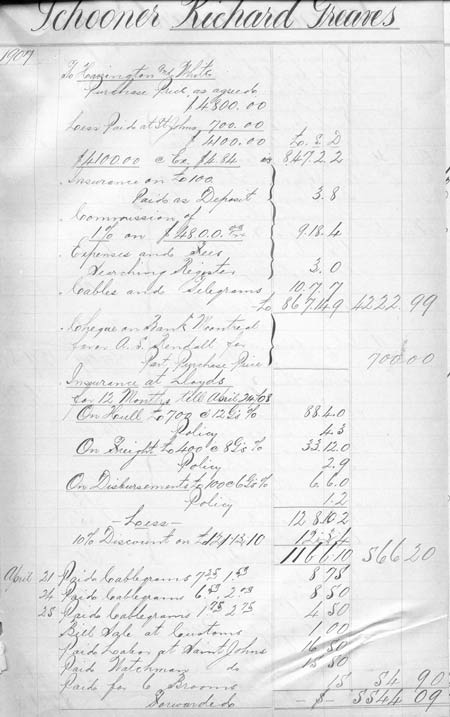 Schooner Richard Greaves
1907
To Harrington and White
Purchase Price as agreed
$4800.00
Less Paid at St Johns 700.00
$4100.00 £ S D
$4100.00 @ Ex. $4.84 is 847.2.2
Insurance on £100
Paid as Deposit 3.8
Commission of
1% on $4800.00 9.18.4
Expenses and Fees
Searching Register 3.0
Cables and Telegrams 10.7.7
£ 867.14.9 4222.99
Cheque on Bank Montreal
favor A. S. Rendall for
Part Purchase Price 700.00
Insurance at Lloyds
for 12 Months till April 24/08
On Hull £700 @ 12 Gs % 88.4.0
Policy 4.3
On Freight £400 @ 8 Gs % 33.12.0
Policy 2.9
On Disbursements £100 @ 6 Gs % 6.6.0
Policy 1.2
128.10.2
- Less -
10% Discount on
116.6.10 566 20
April 21 Paid Cablegrams 8 78
24 Paid Cablegrams 8 50
25 Paid Cablegrams 1.75 2.75 4 50
Bill Sale at Customs 1.00
Paid Labor at Saint Johns 16 50
Paid Watchman do 15 50
Paid for 6 Brooms 15 54 90
Forwarded - $ - 5544 09